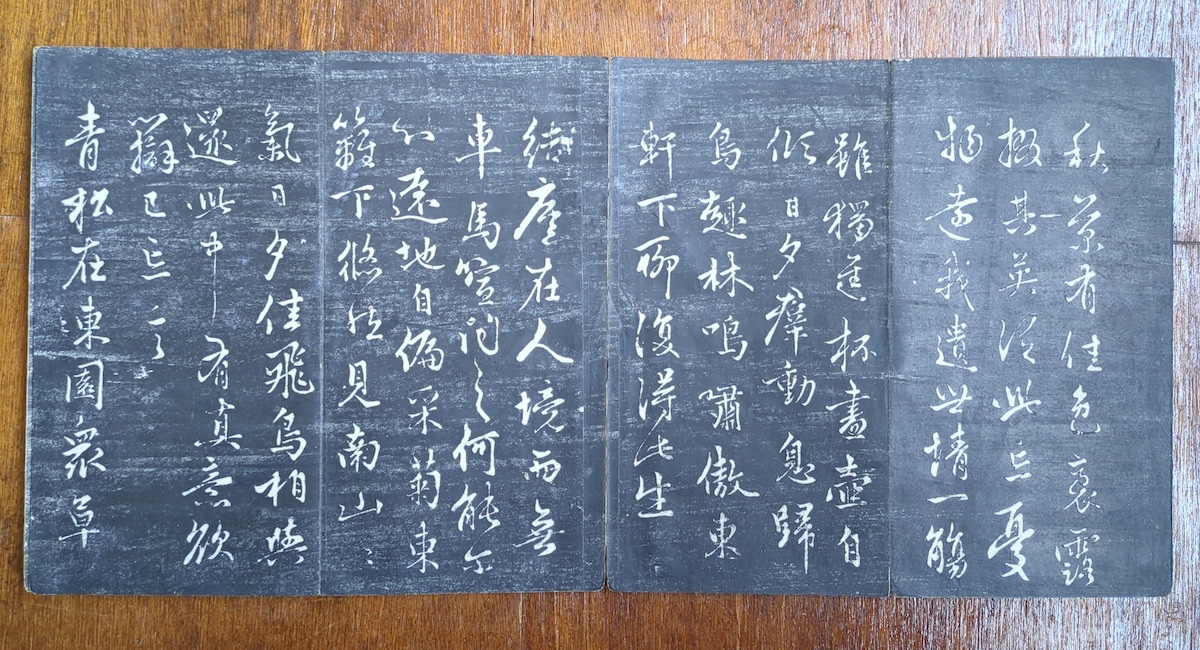 秋菊有佳色裛露
掇其英汎此忘憂
物遠我遺世情一觴
雖獨進杯盡壺自
傾日夕群動息歸
鳥趨林鳴嘯傲東
軒下聊復得此生
結廬在人境而無
車馬喧問君何能尔
心遠地自偏采菊東
籬下悠然見南山〻
氣日夕佳飛鳥相與
還此中有真意欲
辯已忘言
青松在東園衆草